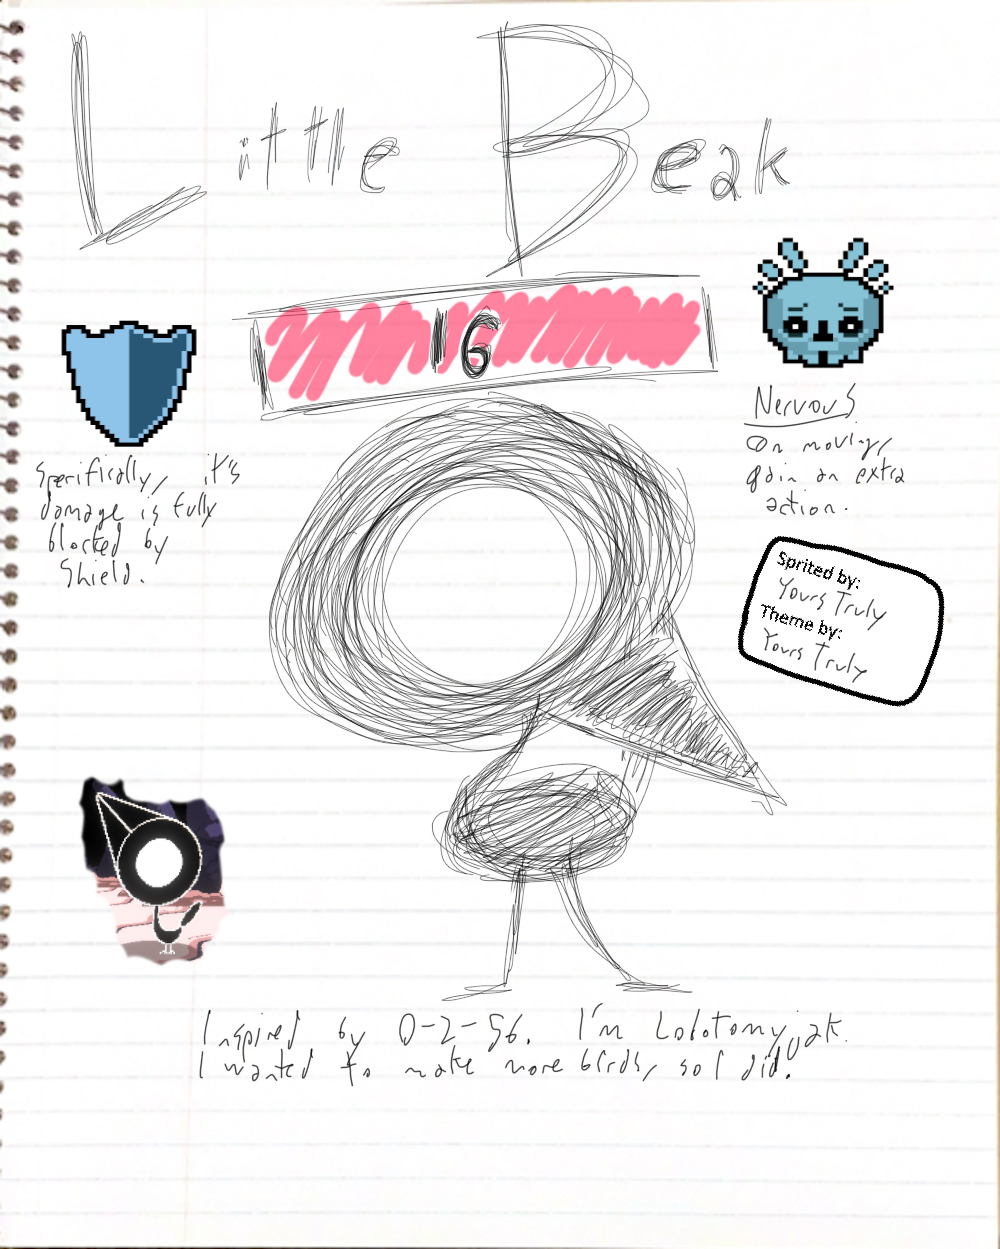 Little Beak
16
Specifically, it's
damage is fully
blocked by
Shield.
Nervous
On moving,
gain an extra
action.
Sprited by:
Yours Truly
Theme by:
Yours Truly
Inspired by O-2-56. I'm Lobotomyjak.
I wanted to make more birds, so I did.